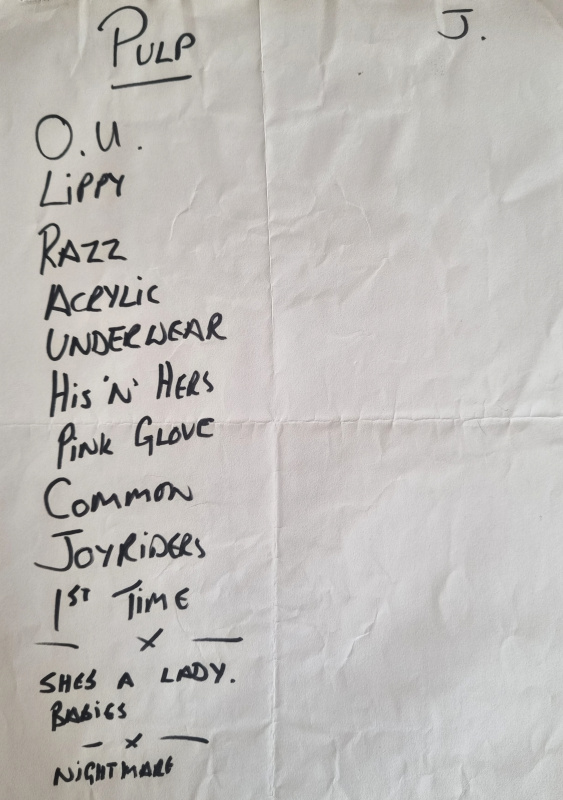 PULP
J.
O.U.
LiPPY
RAZZ
ACRYLiC
UNDERWEAR
HiS 'N' HERS
PiNK GLOVE
COMMON
JOYRiDERS
1ST TiME
— x —
SHES A LADY.
BABiES
— x —
NiGHTMARE